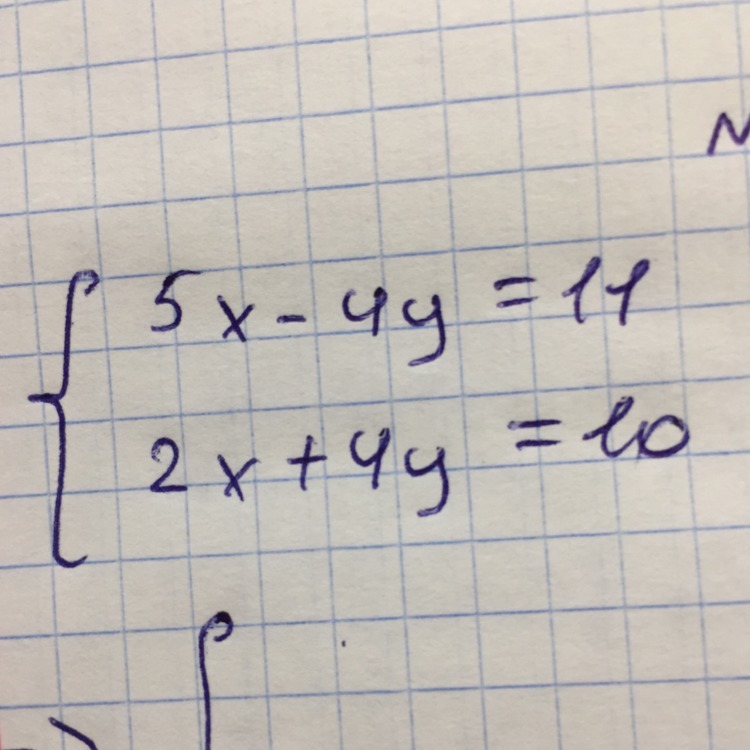 N
5x - 4y = 11
2x + 4y = 10